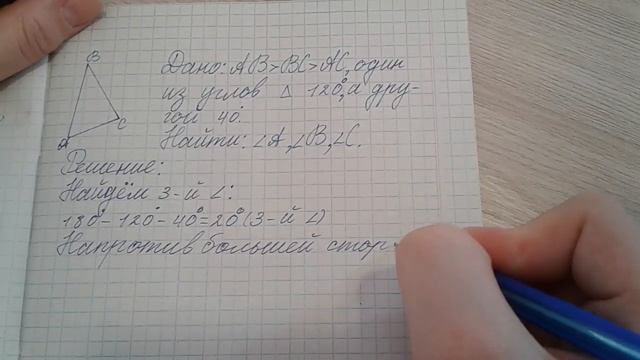 B
Дано: AB>BC>AC, один
из углов △ 120°, а дру-
гой 40°.
C
Найти: ∠A, ∠B, ∠C.
A
Решение:
Найдём 3-й ∠:
180°-120°-40°=20° (3-й ∠)
Напротив большей стор